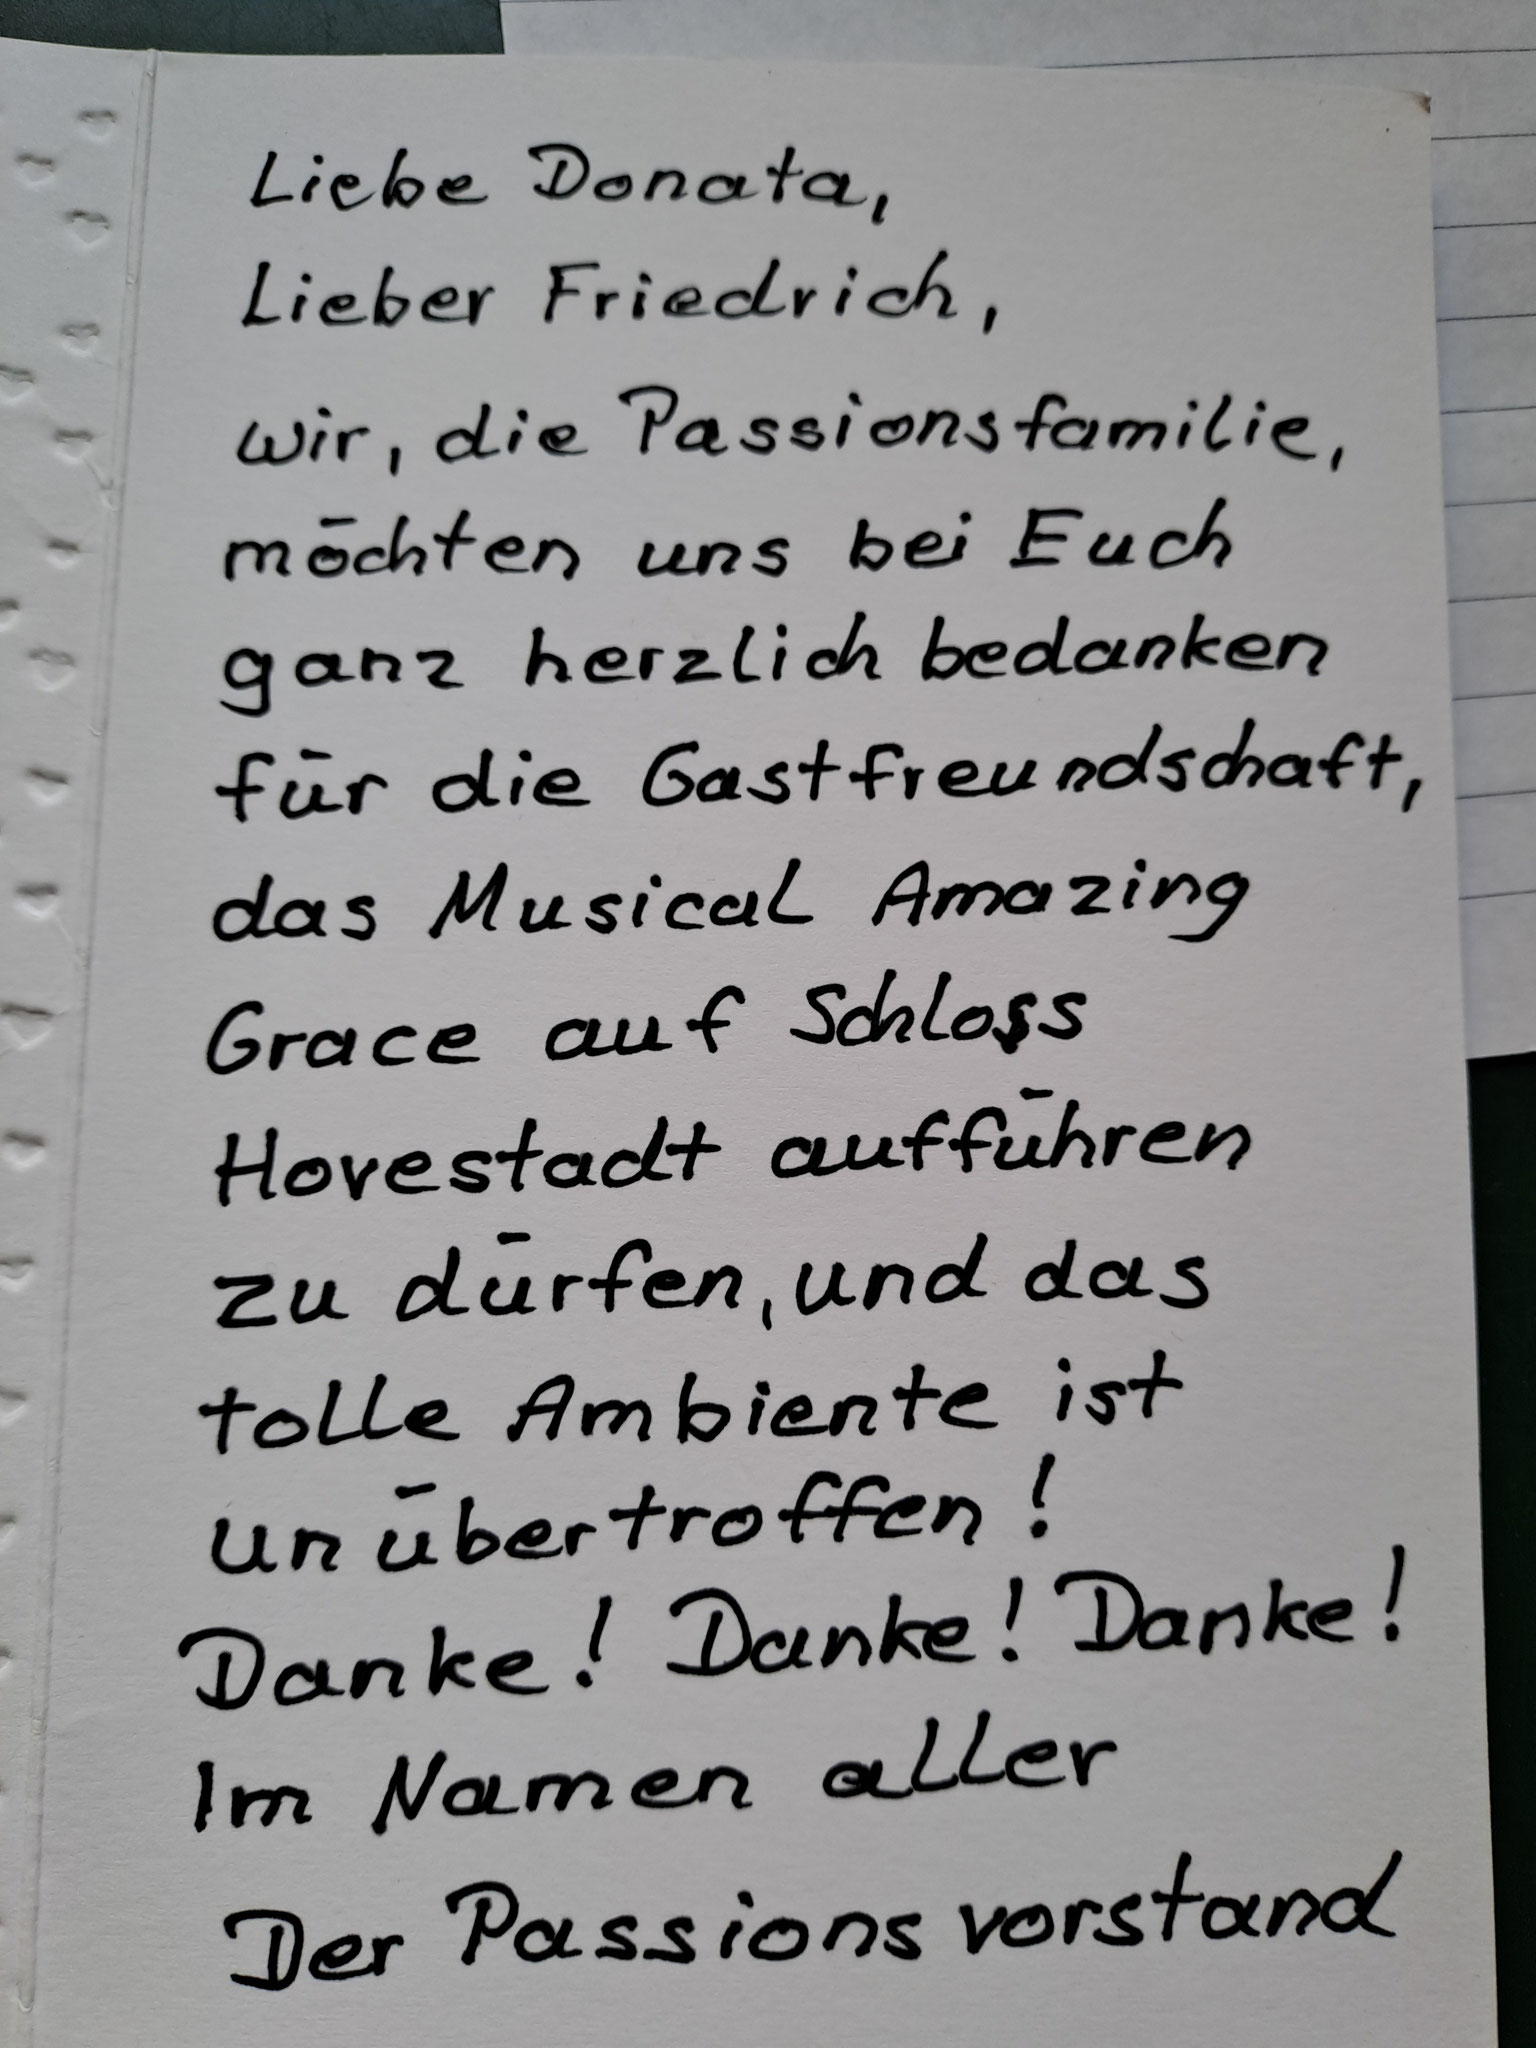 Liebe Donata,
Lieber Friedrich,
wir, die Passionsfamilie,
möchten uns bei Euch
ganz herzlich bedanken
für die Gastfreundschaft,
das Musical Amazing
Grace auf Schloss
Hovestadt aufführen
zu dürfen, und das
tolle Ambiente ist
unübertroffen!
Danke! Danke! Danke!
Im Namen aller
Der Passionsvorstand